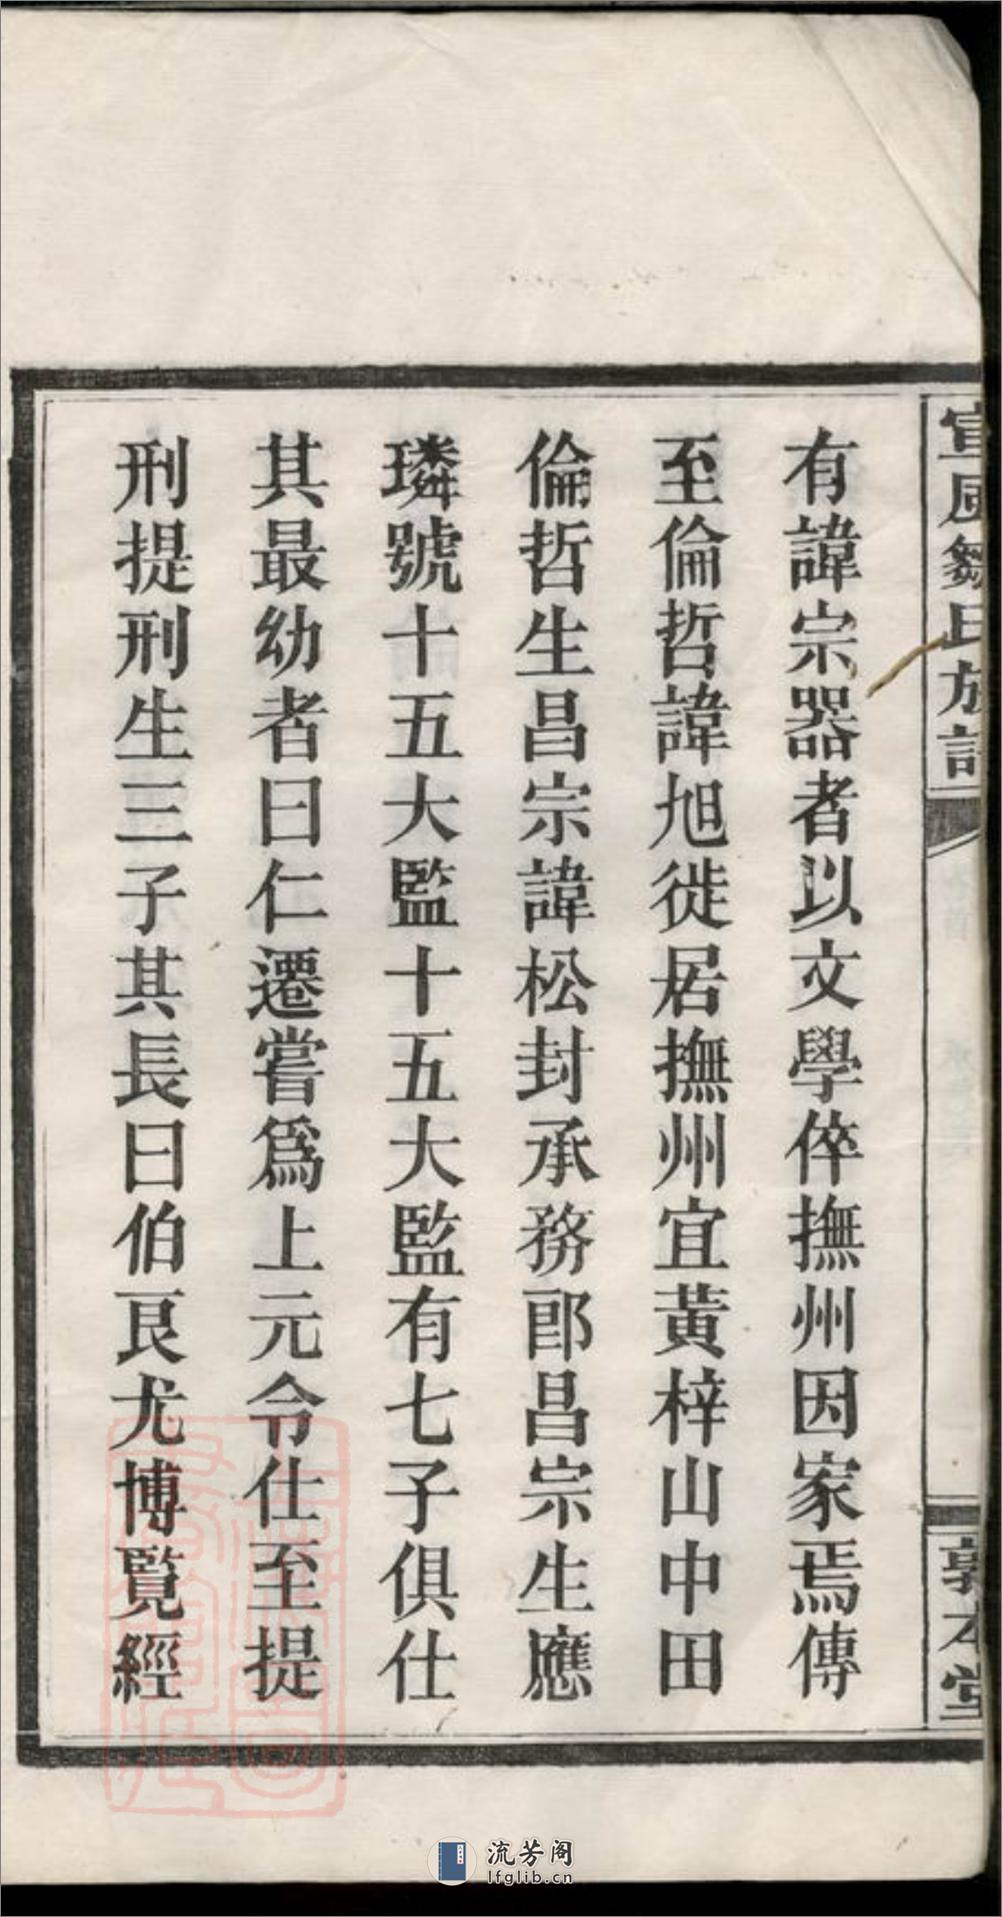 宜風鄒氏族譜
敦本堂
有諱宗器者以文學倅撫州因家焉傳
至倫哲諱旭徙居撫州宜黃梓山中田
倫哲生昌宗諱松封承務郎昌宗生應
璘號十五大監十五大監有七子俱仕
其最幼者曰仁遷嘗爲上元令仕至提
刑提刑生三子其長曰伯良尤博覽經
流芳阁
lfglib.cn